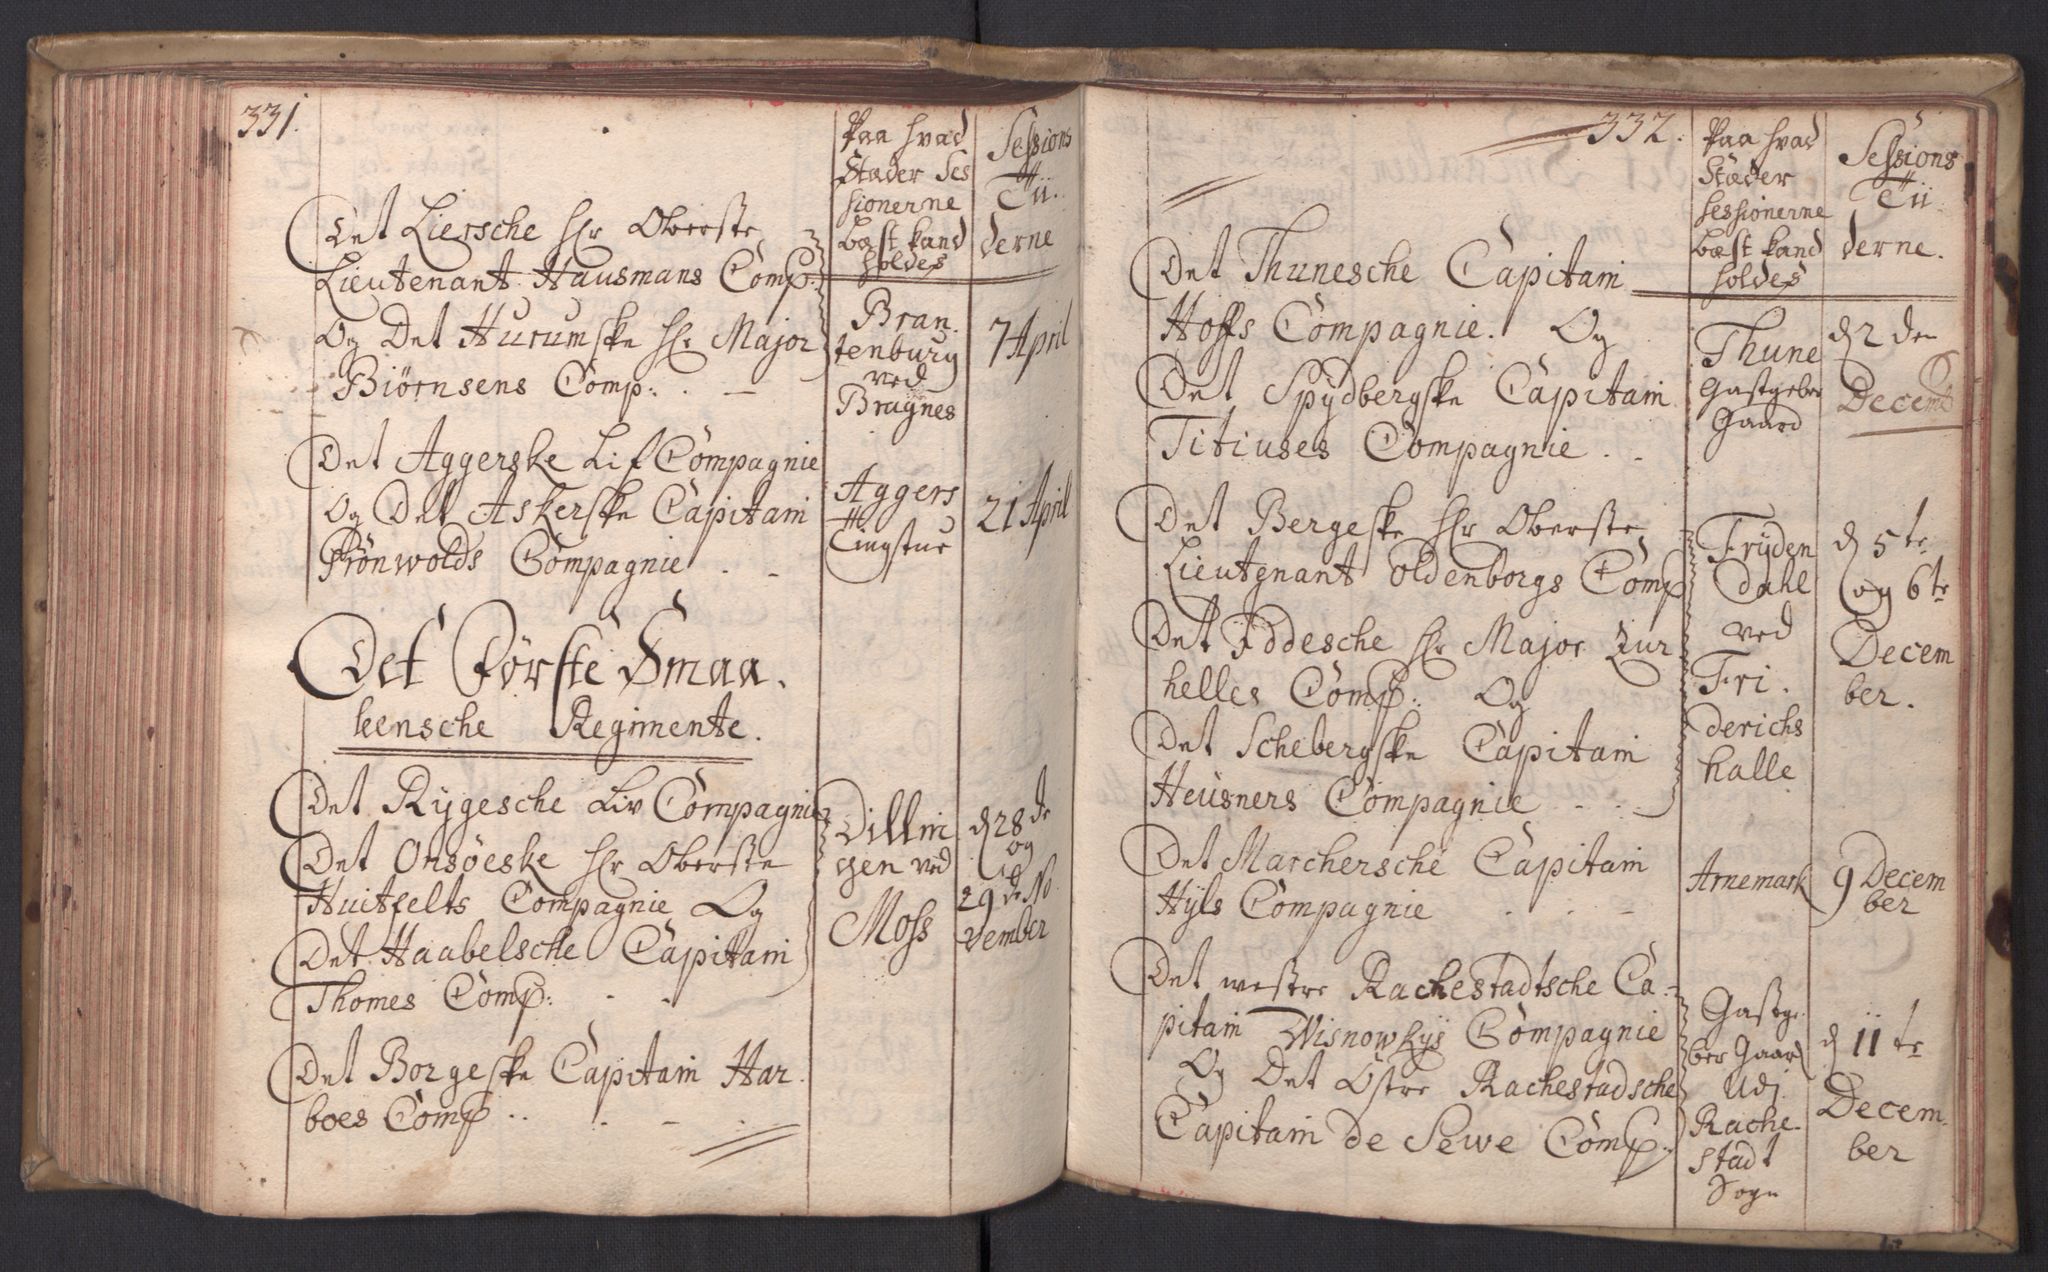 331.
Paa hvad
Stæder Ses
sionerne
bæst kand
holdes
Sessions
Tii
derne
Det Liersche Hr Oberste
Lieutenant Hausmans Comp:
Og Det Hurumske Hr Major
Biørnsens Comp: . –
Bran.
tenburg
ved
Bragnes
7 April
Det Aggerske Lif Compagnie
Og Det Askerske Capitain
Rønwolds Compagnie . –
Aggers
Tingstue
21 April
Det Første Smaa.
leensche Regimente.
Det Rygesche Liv Compagnie
Det Onsøeske Hr Oberste
Huitfelts Compagnie Og
Det Haabelsche Capitain
Thomes Comp: - -
Dillin
gen ved
Moss
d 28 de
og
29 de No
vember
Det Borgeske Capitain Har.
boes Comp . . . –
332.
Paa hvad
Stæder
sessionerne
bæst kand
holdes
Sessions
Tii
derne.
Det Thunesche Capitain
Hoffs Compagnie. Og
Det Spydbergske Capitain
Titiuses Compagnie . .
Thune
Gastgeber
Gaard
d 2 den
Decemb
Det Bergeske Hr Oberste
Lieutenant Oldenborgs Comp
Det Iddesche Hr Major Zur
helles Comp: Og
Det Schebergske Capitain
Heusners Compagnie - - -
Fryden
Dahl
ved
Fri.
derichs
halle
d 5 te
og 6 te
Decem
ber.
Det Marchersche Capitain
Hyls Compagnie . . –
Arnemark
9 Decem
ber
Det westre Rachestadtsche Ca-
pitain Wisnowskys Compagnie
Og Det Østre Rachestadsche
Capitain de Sewe Comp:
Gastge
ber Gaard
Udi
Rache-
stadt
Sogn
d 11 te
Decem
ber